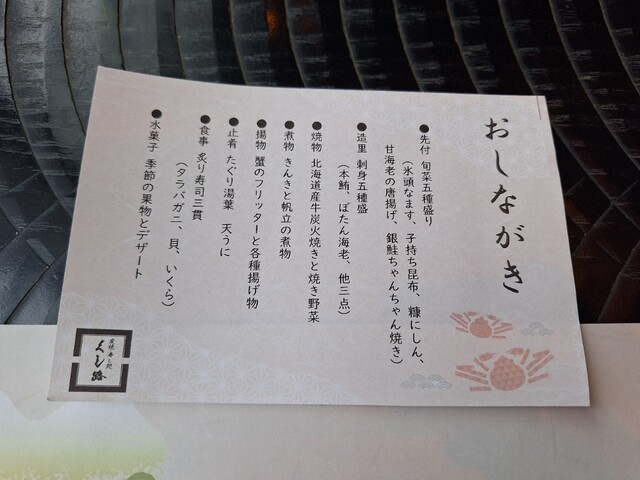 おしながき
●先付 旬菜五種盛り
(氷頭なます、子持ち昆布、糠にしん、
甘海老の唐揚げ、銀鮭ちゃんちゃん焼き)
●造里 刺身五種盛
(本鮪、ぼたん海老、他三点)
●焼物 北海道産牛炭火焼きと焼き野菜
●煮物 きんきと帆立の煮物
●揚物 蟹のフリッターと各種揚げ物
●止肴 たぐり湯葉 天うに
●食事 炙り寿司三貫
(タラバガニ、貝、いくら)
●水菓子 季節の果物とデザート